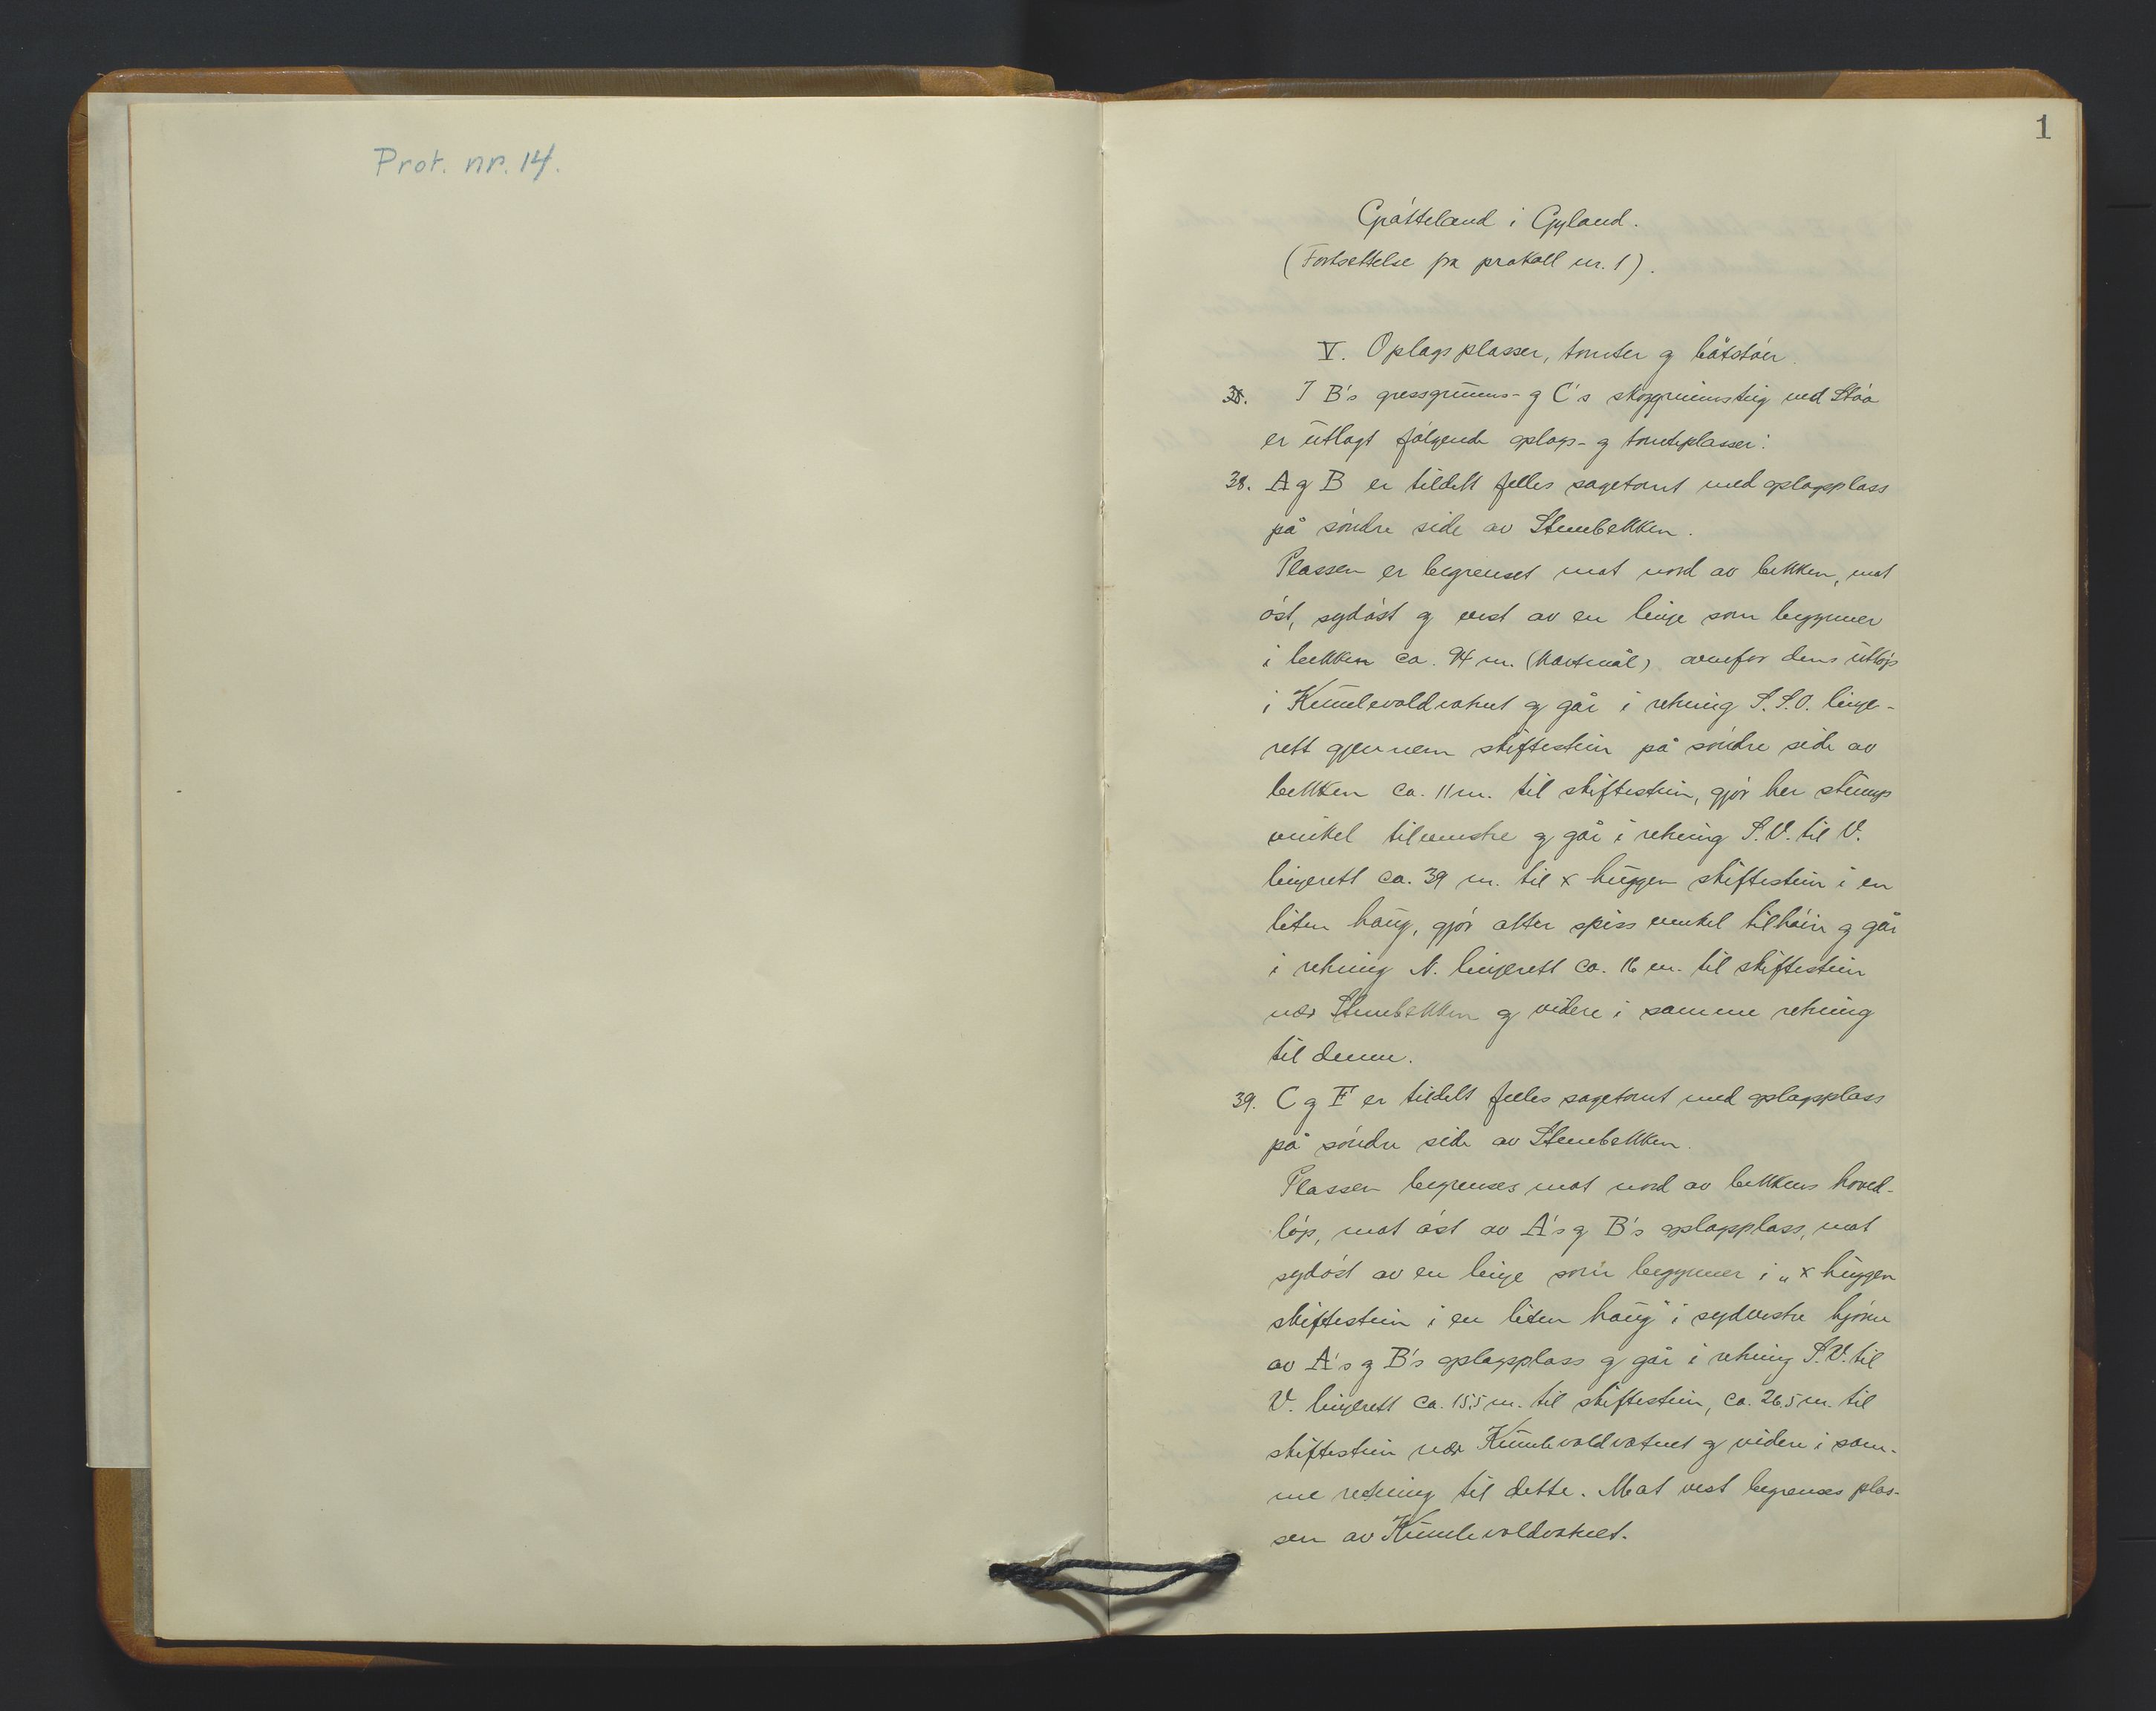 Prot. nr. 14.
1
Gåsteland i Gyland.
(Fortsettelse fra protokoll nr. 1).
V. Oplagsplasser, tomter og båtstöer.
38. I B's gressgrunns- og C's skoggrunnsteig ved Stöa
er utlagt fölgende oplags- og tomteplasser:
38. A og B er tildelt felles sagetomt med oplagsplass
på söndre side av Stembekken.
Plassen er begrenset mot nord av bekken, mot
öst, sydöst og vest av en linje som begynner
i bekken ca. 94 m. (kartmål) ovenfor dens utlöp
i Kumlevoldvatnet og går i retning S.S.O. linje-
rett gjennem skiftestein på söndre side av
bekken ca. 11 m. til skiftestein, gjör her stump
vinkel tilvenstre og går i retning S.V. til V.
linjerett ca. 39 m. til x huggen skiftestein i en
liten haug, gjör atter spiss vinkel tilhöire og går
i retning N. linjerett ca. 16 m. til skiftestein
nær Stembekken og videre i samme retning
til denne.
39. C og F er tildelt felles sagetomt med oplagsplass
på söndre side av Stembekken.
Plassen begrenses mot nord av bekkens hoved-
löp, mot öst av A's og B's oplagsplass, mot
sydöst av en linje som begynner i „x huggen
skiftestein i en liten haug" i sydvestre hjörne
av A's og B's oplagsplass og går i retning S.V. til
V. linjerett ca. 15,5 m. til skiftestein, ca. 26.5 m. til
skiftestein nær Kumlevoldvatnet og videre i sam-
me retning til dette. Mot vest begrenses plas-
sen av Kumlevoldvatnet.